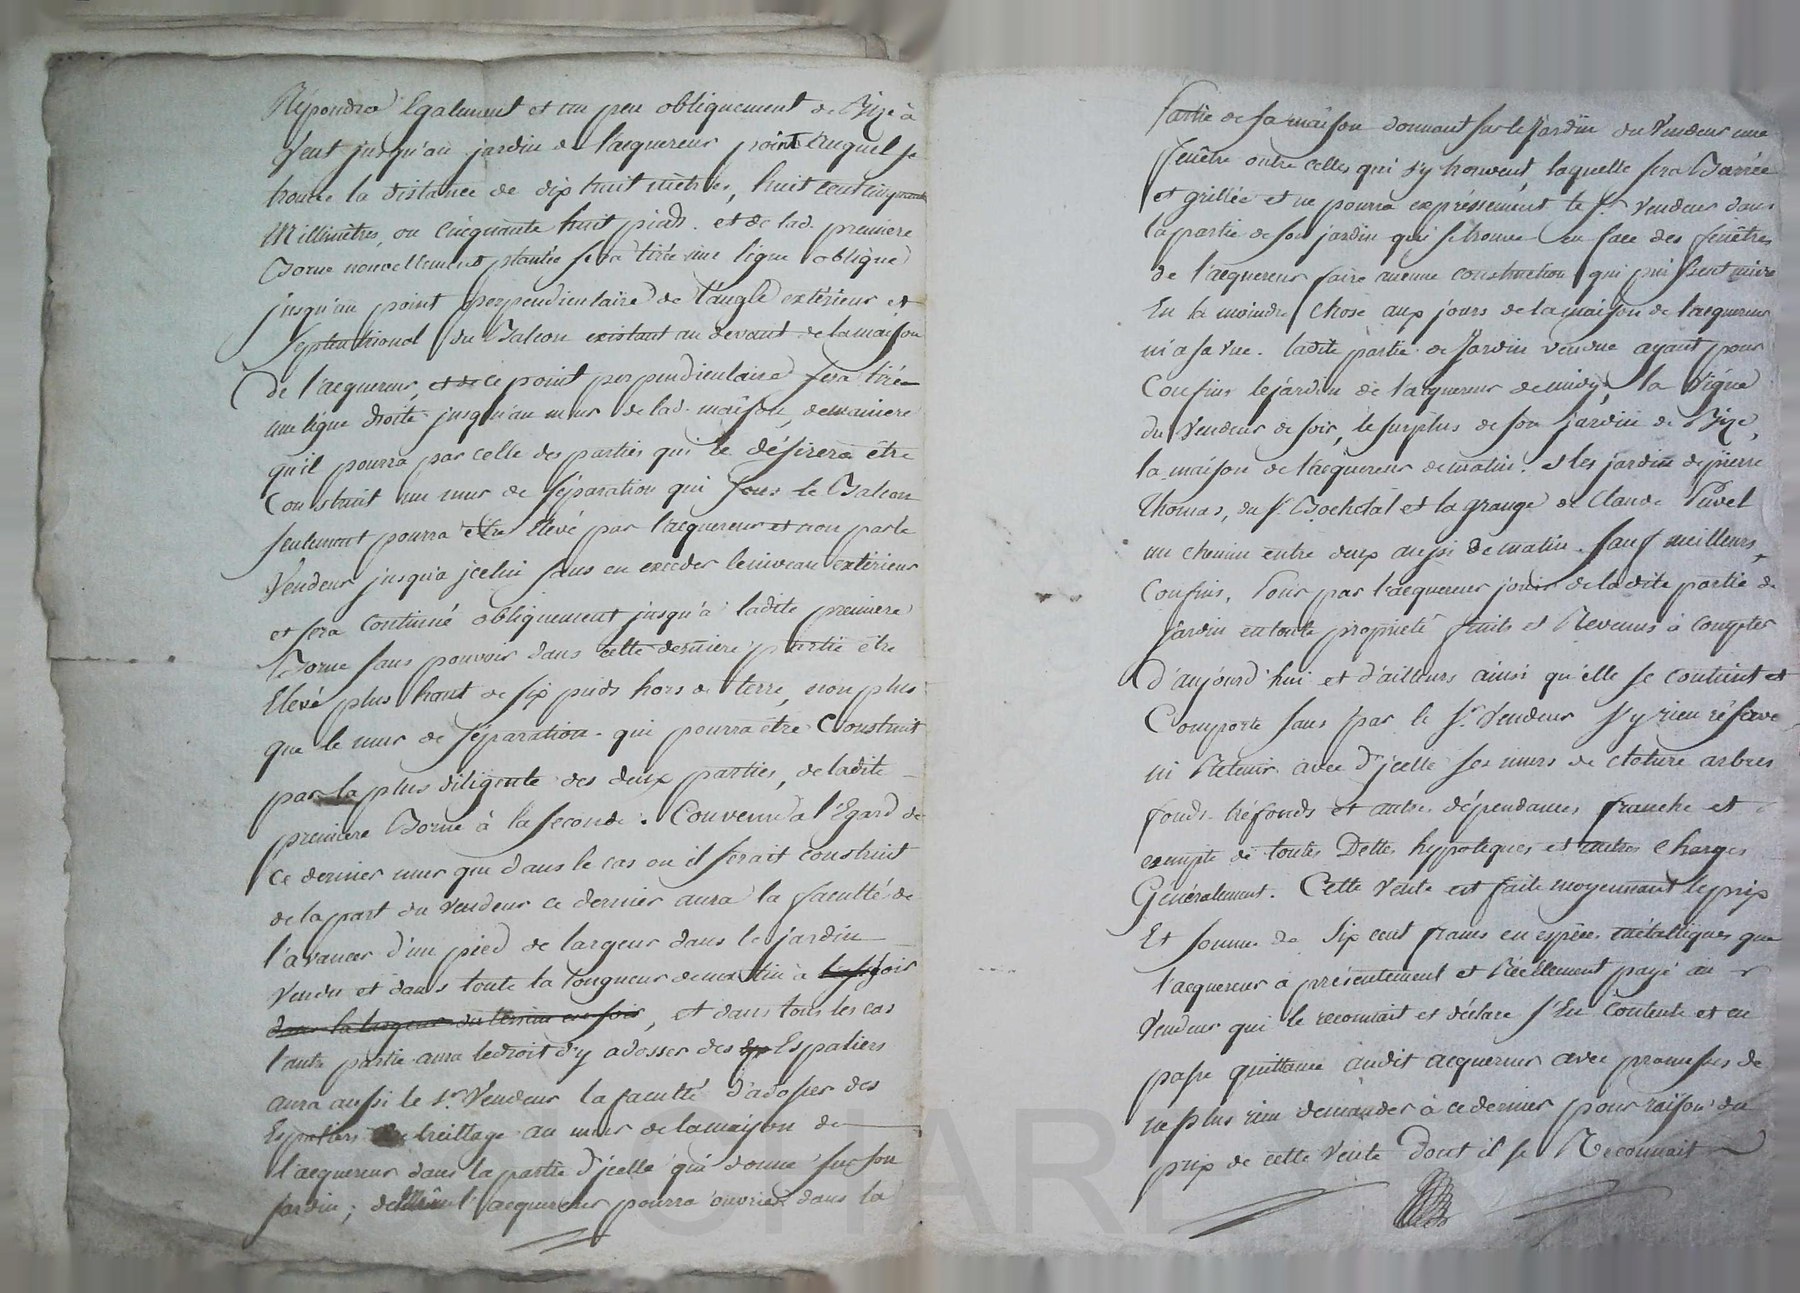 Répondra Egalement et un peu obliquement de Bize à
Vent jusqu'au jardin de l'acquereur point auquel se
trouve la distance de dix huit mètres, huit cent cinquante
Millimètres, ou Cinquante huit pieds. et de lad. premiere
Borne nouvellement plantée sera tirée une ligne oblique
jusqu'au point perpendiculaire de l'angle extérieur et
Septentrional du Balcon existant au devant de la maison
De l'acquereur, et de ce point perpendiculaire sera tirée
une ligne droite jusqu'au mur de lad. maison, de maniere
qu'il pourra par celle des parties qui le désirera être
Construit un mur de séparation qui sous le Balcon
seulement pourra être Elevé par l'acquereur et non par le
Vendeur jusqu'a jcelui sans en exceder le niveau extérieur
et sera Continué obliquement jusqu'à ladite premiere
Borne sans pouvoir dans cette derniere partie être
Elevé plus haut de six pieds hors de terre, non plus
que le mur de séparation qui pourra être Construit
par la plus diligente des deux parties, de ladite
premiere Borne à la seconde. Convenu à l'Egard de
Ce dernier mur que dans le cas ou il serait construit
de la part du Vendeur ce dernier aura la faculté de
l'avancer d'un pied de largeur dans le jardin
Vendu et dans toute la longueur de matin à soir
dans la largeur du terrein en soir, et dans tous les cas
l'autre partie aura le droit d'y adosser des Espaliers
aura aussi le Sr. Vendeur la faculté d'adosser des
Espaliers treillage au mur de la maison de
l'acquereur dans la partie d'jcelle qui donne sur son
jardin; de même l'acquereur pourra ouvrir dans la
Partie de sa maison donnant sur le Jardin du Vendeur une
fenêtre outre celles qui s'y trouvent, laquelle sera Barrée
et grillée et ne pourra expréssement le Sr. Vendeur dans
la partie de son jardin qui se trouve en face des fenêtres
de l'acquereur faire aucune construction qui puissent nuire
En la moindre Chose aux jours de la maison de l'acquereur
ni a sa vue. ladite partie de Jardin vendue ayant pour
Confins le jardin de l'acquereur de midy, la Vigne
du Vendeur de soir, le surplus de son jardin de Bize,
la maison de l'acquereur de matin. et les jardin de pierre
Thomas, du Sr. et la grange de Claude
un chemin entre deux aussi de matin. sauf meilleurs
Confins, Pour par l'acquereur jouir de ladite partie de
jardin en toute propriété fruits et Revenus à compter
D'aujourd'hui et d'ailleurs ainsi qu'elle se contient et
Comporte sans par le Sr. Vendeur s'y rien réserve
ni Retenir avec d'jcelle ses murs de cloture arbres
fonds tréfonds et autres dépendances franche et
exempte de toutes Dettes hypoteques et autres Charges
Généralement. Cette Vente est faite moyennant le prix
Et somme de Six cent francs en espèces métalliques que
l'acquereur à présentement et Réellement payé au
Vendeur qui le reconnait et déclare s'En Contente et en
passe quittance audit acquereur avec promesses de
ne plus rien demander à ce dernier pour raison du
prix de cette Vente Dont il se Reconnait